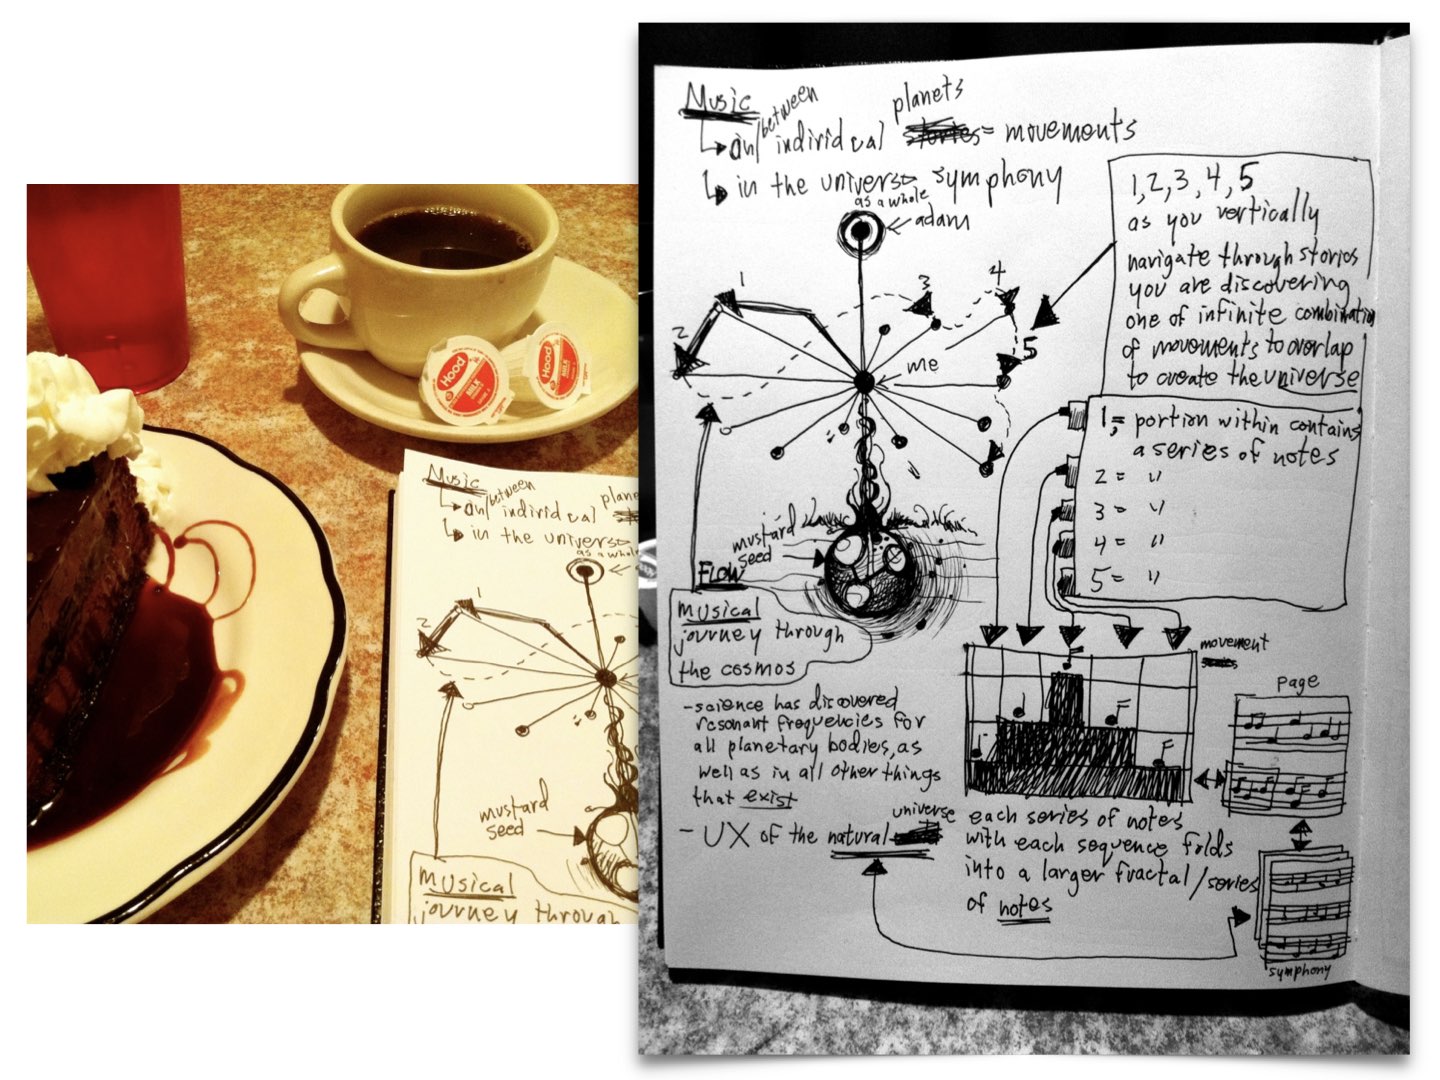 Hood
MILK
Hood
MILK
Music
on/between individual
plane
in the univers
as a whole
1
2
mustard
seed
musical
journey through
Music
on/between individual planets = movements
in the universe symphony
as a whole
adam
1
2
3
4
5
me
mustard
seed
FLOW
musical
journey through
the cosmos
- science has discovered
resonant frequencies for
all planetary bodies, as
well as in all other things
that exist
- UX of the natural universe
1, 2, 3, 4, 5
as you vertically
navigate through stories
you are discovering
one of infinite combination
of movements to overlap
to create the universe
1, = portion within contains
a series of notes
2 = "
3 = "
4 = "
5 = "
movement
Page
each series of notes
with each sequence folds
into a larger fractal/series
of notes
symphony